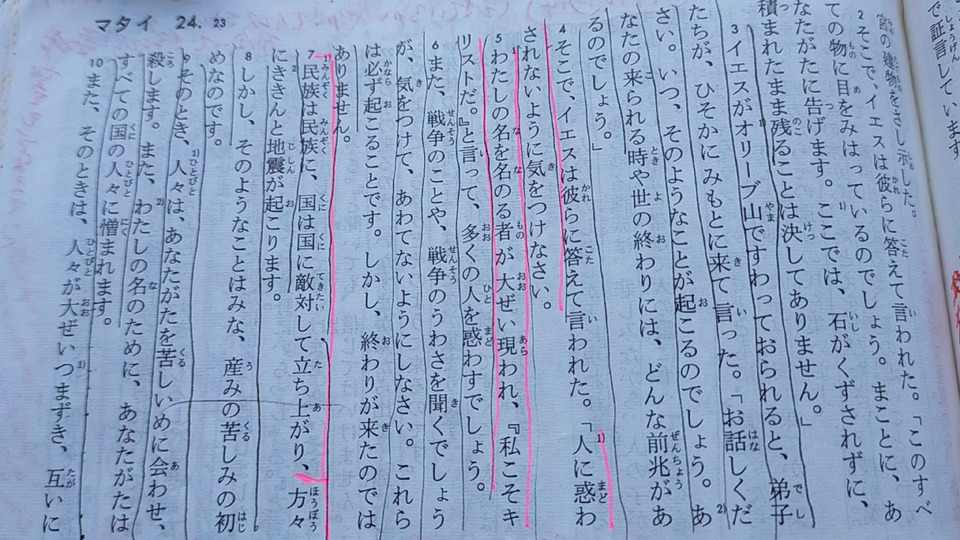 マタイ 24. 23
で証言しています
宮の建物をさし示した。
2 そこで、イエスは彼らに答えて言われた。「このすべ
ての物に目をみはっているのでしょう。まことに、あ
なたがたに告げます。ここでは、石がくずされずに、
積まれたまま残ることは決してありません。」
3 イエスがオリーブ山ですわっておられると、弟子
たちが、ひそかにみもとに来て言った。「お話しくだ
さい。いつ、そのようなことが起こるのでしょう。あ
なたの来られる時や世の終わりには、どんな前兆があ
るのでしょう。」
4 そこで、イエスは彼らに答えて言われた。「人に惑わ
されないように気をつけなさい。
5 わたしの名を名のる者が大ぜい現われ、『私こそキ
リストだ。』と言って、多くの人を惑わすでしょう。
6 また、戦争のことや、戦争のうわさを聞くでしょう
が、気をつけて、あわてないようにしなさい。これら
は必ず起こることです。しかし、終わりが来たのでは
ありません。
7 民族は民族に、国は国に敵対して立ち上がり、方々
にききんと地震が起こります。
8 しかし、そのようなことはみな、産みの苦しみの初
めなのです。
9 そのとき、人々は、あなたがたを苦しいめに会わせ、
殺します。また、わたしの名のために、あなたがたは
すべての国の人々に憎まれます。
10 また、そのときは、人々が大ぜいつまずき、互いに